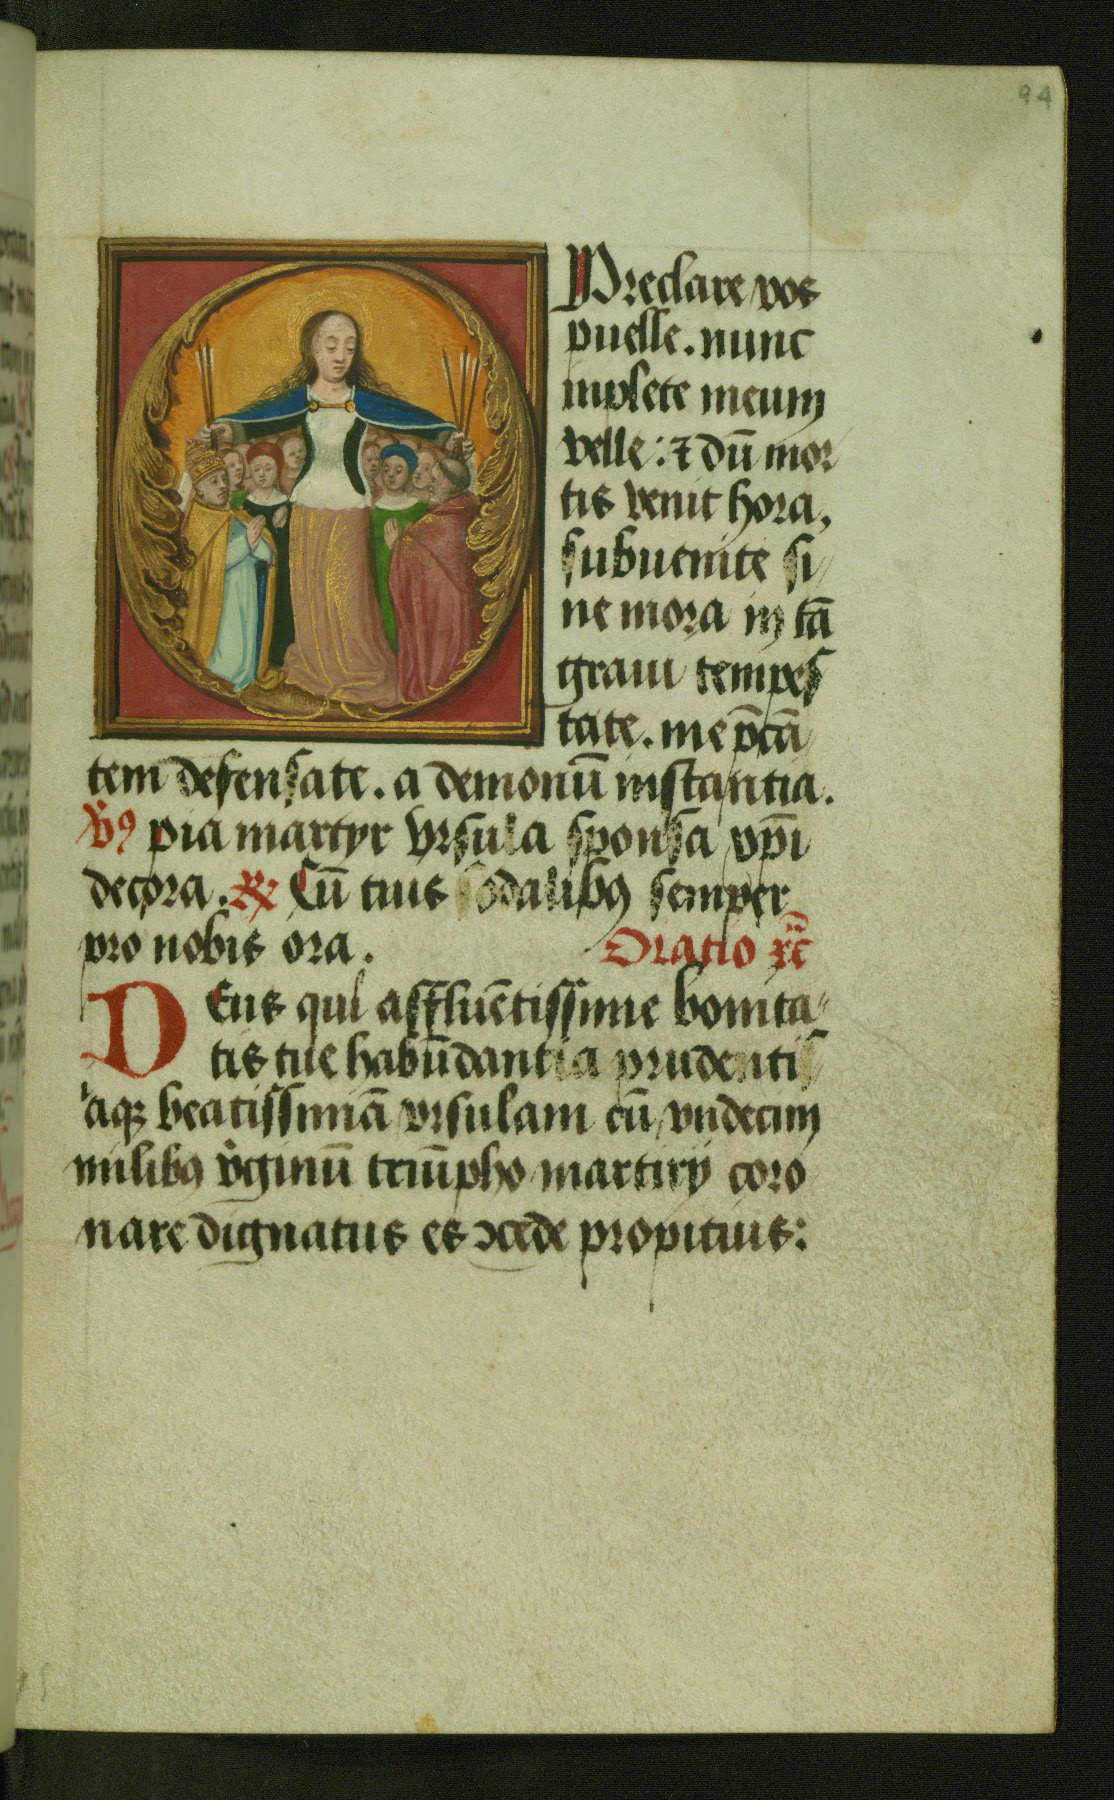 94
Preclare vos
puelle. nunc
implete meum
velle: ⁊ dū mor
tis venit hora,
subuenite si
ne mora in tā
graui tempes
tate. me p̄cā
tem defensate. a demonū instantia.
pia martyr vrsula sponsa xp̄i
decora. ℟ Cū tuis sodalibꝯ semper
pro nobis ora. Oratio
DEus qui affluētissime bonita
tis tue habūdantia prudentis
beatissimā vrsulam cū vndecim
milibꝯ v̓ginū triūpho martirij coro
nare dignatus es ꝯcede propitius: